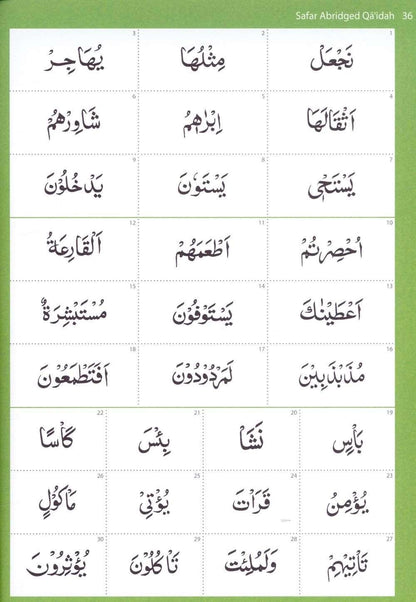 Safar Abridged Qā'idah 36
1 2 3
نَجْعَلْ مِثْلُهَا يُهَاجِرْ
4 5 6
اَثْقَالَهَا اِبْرٰهٖمُ شَاوِرْهُمْ
7 8 9
يَسْتَحْيٖ يَسْتَوٗنَ يَدْخُلُوْنَ
10 11 12
اُحْصِرْتُمْ اَطْعَمَهُمْ اَلْقَارِعَةُ
13 14 15
اَعْطَيْنٰكَ يَسْتَوْفُوْنَ مُسْتَبْشِرَةٌ
16 17 18
مُذَبْذَبِيْنَ لَمَرْدُوْدُوْنَ اَفَتَطْمَعُوْنَ
19 20 21 22
بَاْسِ نَشَاْ بِئْسَ كَاْسًا
23 24 25 26
يُؤْمِنُ قَرَاْتَ يُؤْتِيْ مَاْكُوْلٍ
27 28 29 30
تَاْتِيْهِمْ وَلَمُلِئْتَ تَاْكُلُوْنَ يُؤْثِرُوْنَ